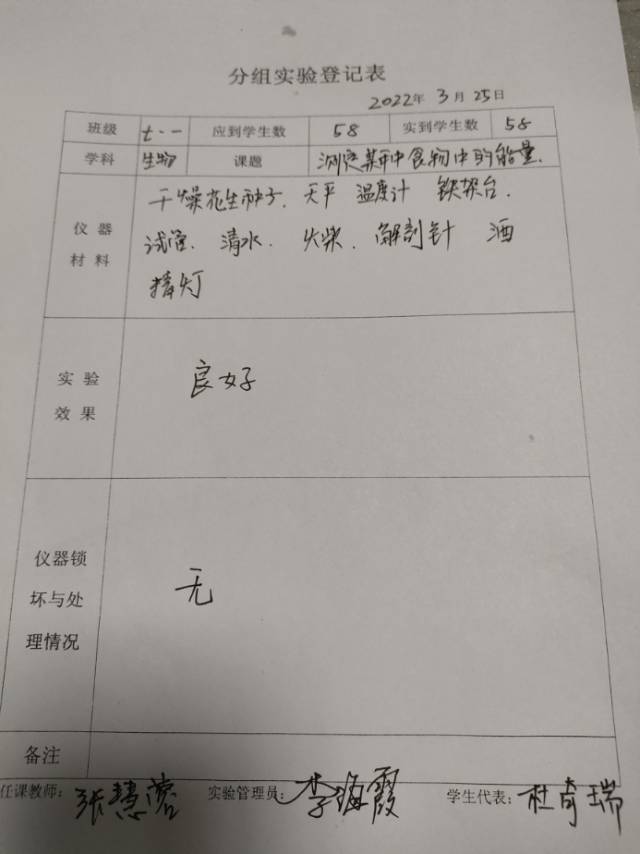 分组实验登记表
2022年 3月 25日
班级 七.一 应到学生数 58 实到学生数 58
学科 生物 课题 测定某种食物中的能量.
仪器
材料
干燥花生种子. 天平 温度计 铁架台.
试管. 清水. 火柴. 解剖针 酒
精灯
实验
效果
良好
仪器锁
坏与处
理情况
无
备注
任课教师: 张慧蓉 实验管理员: 李海霞 学生代表: 杜奇瑞